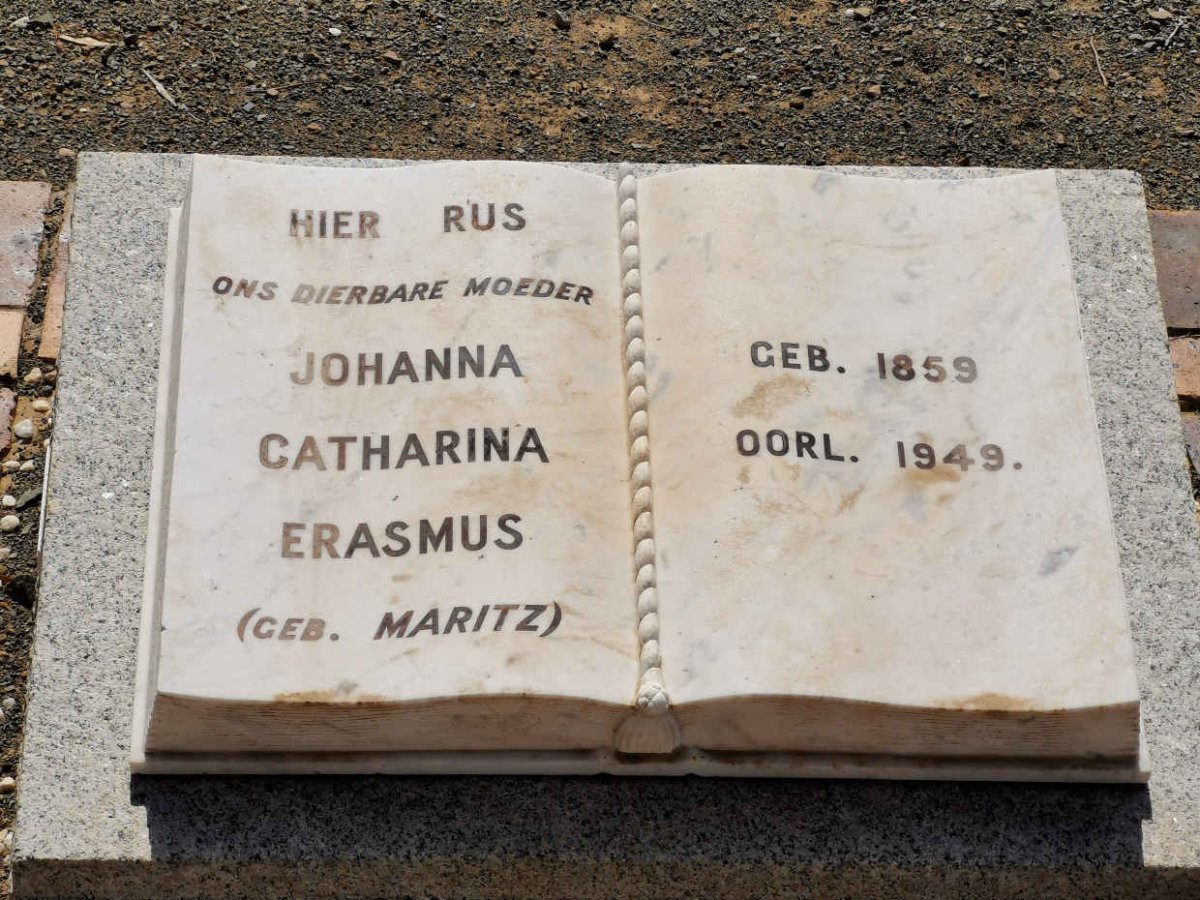 HIER RUS
ONS DIERBARE MOEDER
JOHANNA
CATHARINA
ERASMUS
(GEB. MARITZ)
GEB. 1859
OORL. 1949.